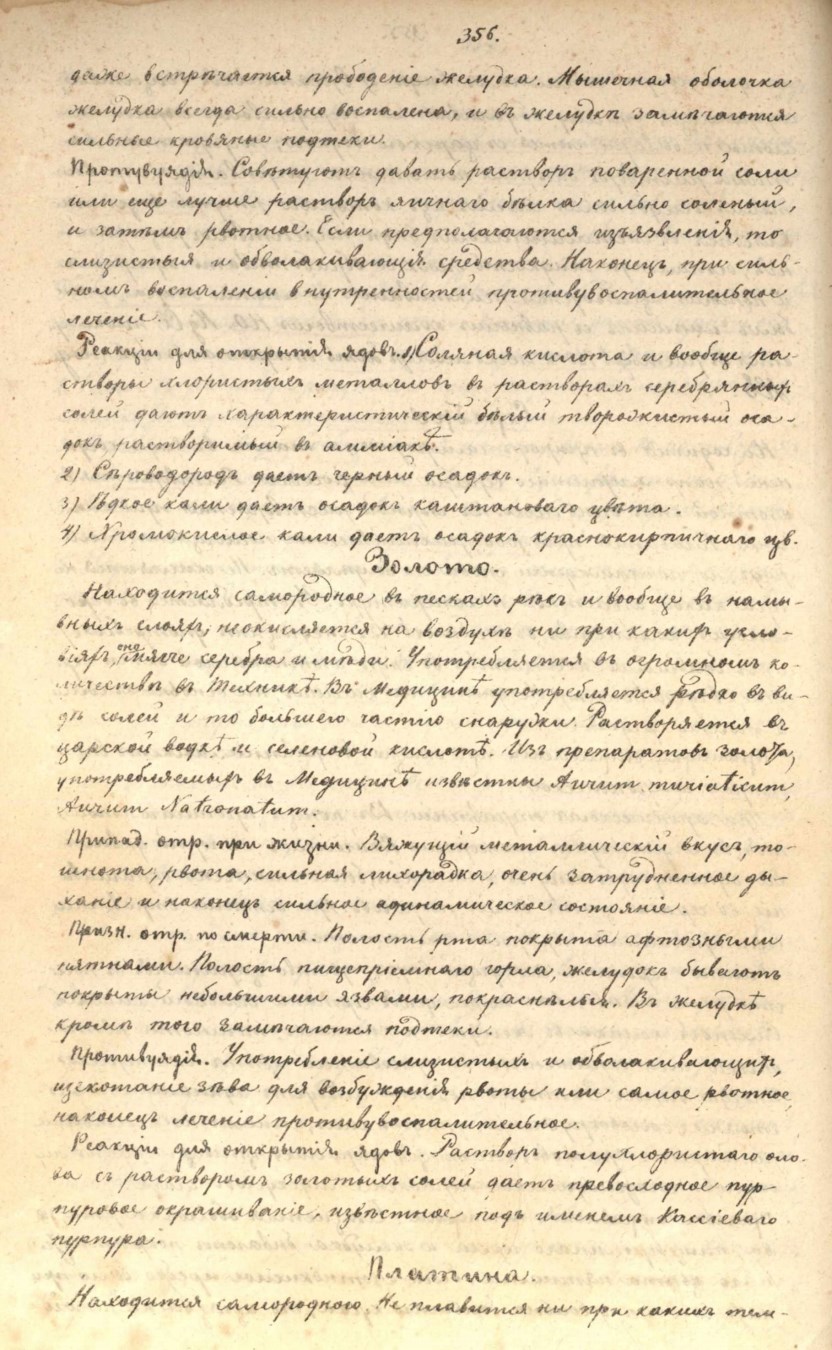 356.
даже встрѣчается прободеніе желудка. Мышечная оболочка
желудка всегда сильно воспалена, и въ желудкѣ замѣчаются
сильные кровяные подтеки.
Противуядія. Совѣтуютъ давать растворъ поваренной соли
или еще лучше растворъ яичнаго бѣлка сильно соленый,
и затѣмъ рвотное. Если предполагаются изъязвленія, то
слизистыя и обволакивающія средства. Наконецъ, при силь-
номъ воспаленіи внутренностей противувоспалительное
леченіе.
Реакціи для открытія ядовъ. 1) Соляная кислота и вообще ра-
створы хлористыхъ металловъ въ растворахъ серебряныхъ
солей даютъ характеристическій бѣлый творожистый оса-
докъ растворимый въ амміакѣ.
2) Сѣроводородъ даетъ черный осадокъ.
3) Ѣдкое кали даетъ осадокъ каштановаго цвѣта.
4) Хромокислое кали даетъ осадокъ краснокирпичнаго цв.
Золото.
Находится самородное въ пескахъ рѣкъ и вообще въ намы-
вныхъ слояхъ; неокисляется на воздухѣ ни при какихъ усло-
віяхъ, оно мягче серебра и мѣди. Употребляется въ огромномъ ко-
личествѣ въ Техникѣ. Въ Медицинѣ употребляется рѣдко въ ви-
дѣ солей и то большею частію снаружи. Растворяется въ
царской водкѣ и селеновой кислотѣ. Изъ препаратовъ золота,
употребляемыхъ въ Медицинѣ извѣстны Aurum muriaticum,
Aurum Natronatum.
Припад. отр. при жизни. Вяжущій металлическій вкусъ, то-
шнота, рвота, сильная лихорадка, очень затрудненное ды-
ханіе и наконецъ сильное адинамическое состояніе.
Призн. отр. по смерти. Полость рта покрыта афтозными
пятнами. Полость пищепріемнаго горла, желудокъ бываютъ
покрыты небольшими язвами, покраснѣлыя. Въ желудкѣ
кромѣ того замѣчаются подтеки.
Противуядія. Употребленіе слизистыхъ и обволакивающихъ,
щекотаніе зѣва для возбужденія рвоты или самое рвотное,
наконецъ леченіе противувоспалительное.
Реакціи для открытія ядовъ. Растворъ полухлористаго оло-
ва съ растворомъ золотыхъ солей даетъ превосходное пур-
пуровое окрашиваніе, извѣстное подъ именемъ Кассіеваго
пурпура.
Платина.
Находится самородного. Не плавится ни при какихъ тем-